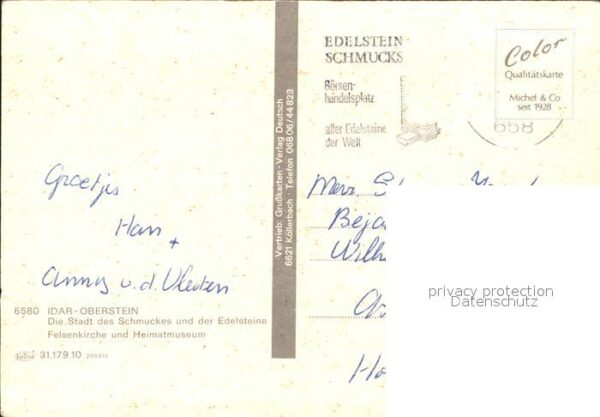 EDELSTEIN
SCHMUCKS
Börsen-
handelsplatz
aller Edelsteine
der Welt
658
Color
Qualitätskarte
Michel & Co
seit 1928
Groetjes
Han
+
Annys v.d. Vleuten
6580 IDAR-OBERSTEIN
Die Stadt des Schmuckes und der Edelsteine
Felsenkirche und Heimatmuseum
31.179.10 265910
Vertrieb: Grußkarten-Verlag Deutsch
6621 Köllerbach · Telefon 068 06/44 823
Mevr.
Beja
Wilh
Ho
privacy protection
Datenschutz